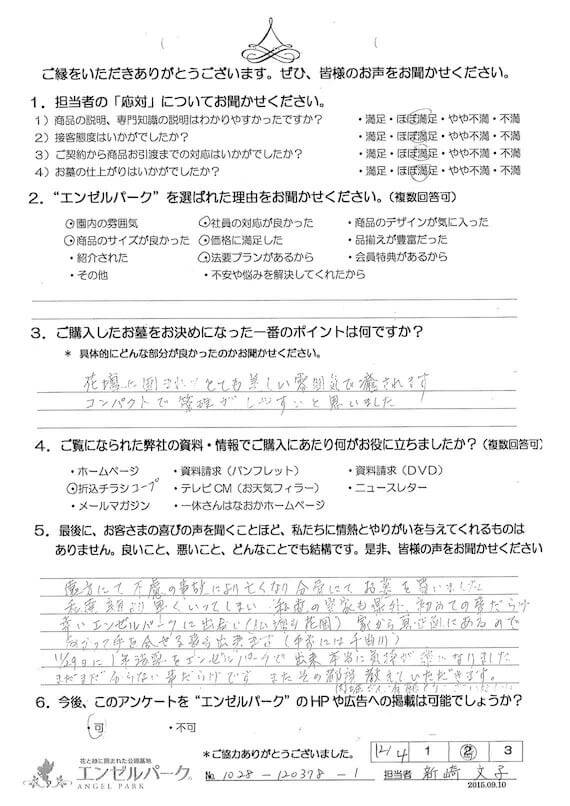 ご縁をいただきありがとうございます。ぜひ、皆様のお声をお聞かせください。
1．担当者の「応対」についてお聞かせください。
1）商品の説明、専門知識の説明はわかりやすかったですか？ ・満足・ほぼ満足・やや不満・不満
2）接客態度はいかがでしたか？ ・満足・ほぼ満足・やや不満・不満
3）ご契約から商品お引渡までの対応はいかがでしたか？ ・満足・ほぼ満足・やや不満・不満
4）お墓の仕上がりはいかがでしたか？ ・満足・ほぼ満足・やや不満・不満
2．“エンゼルパーク”を選ばれた理由をお聞かせください。（複数回答可）
・園内の雰囲気 ・社員の対応が良かった ・商品のデザインが気に入った
・商品のサイズが良かった ・価格に満足した ・品揃えが豊富だった
・紹介された ・法要プランがあるから ・会員特典があるから
・その他 ・不安や悩みを解決してくれたから
3．ご購入したお墓をお決めになった一番のポイントは何ですか？
＊ 具体的にどんな部分が良かったのかお聞かせください。
花壇に囲まれ とても美しい雰囲気で癒されます
コンパクトで管理がしやすいと思いました
4．ご覧になられた弊社の資料・情報でご購入にあたり何がお役に立ちましたか？（複数回答可）
・ホームページ ・資料請求（パンフレット） ・資料請求（DVD）
・折込チラシ コープ ・テレビCM（お天気フィラー） ・ニュースレター
・メールマガジン ・一休さんはなおかホームページ
5．最後に、お客さまの喜びの声を聞くことほど、私たちに情熱とやりがいを与えてくれるものは
ありません。良いこと、悪いこと、どんなことでも結構です。是非、皆様の声をお聞かせください
にて不慮の事故により亡くなり分骨にてお墓を買いました
初めての事だらけ
エンゼルパークに出会い 家から真正面にあるので
手を合せる事も出来ます
11/29日に1年法要をエンゼルパークで出来 本当に気持が楽になりました
まだまだ分らない事だらけです またその都度教えていただきます。
6．今後、このアンケートを“エンゼルパーク”のHPや広告への掲載は可能でしょうか？
・可 ・不可
＊ご協力ありがとうございました。 12/4 1 2 3
花と緑に囲まれた公園墓地
エンゼルパーク®
ANGEL PARK
No. 1028-120378-1 担当者 新崎 文子
2015.09.10